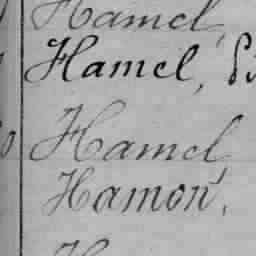 Hamel,
Hamel,
Hamel,
Hamon,